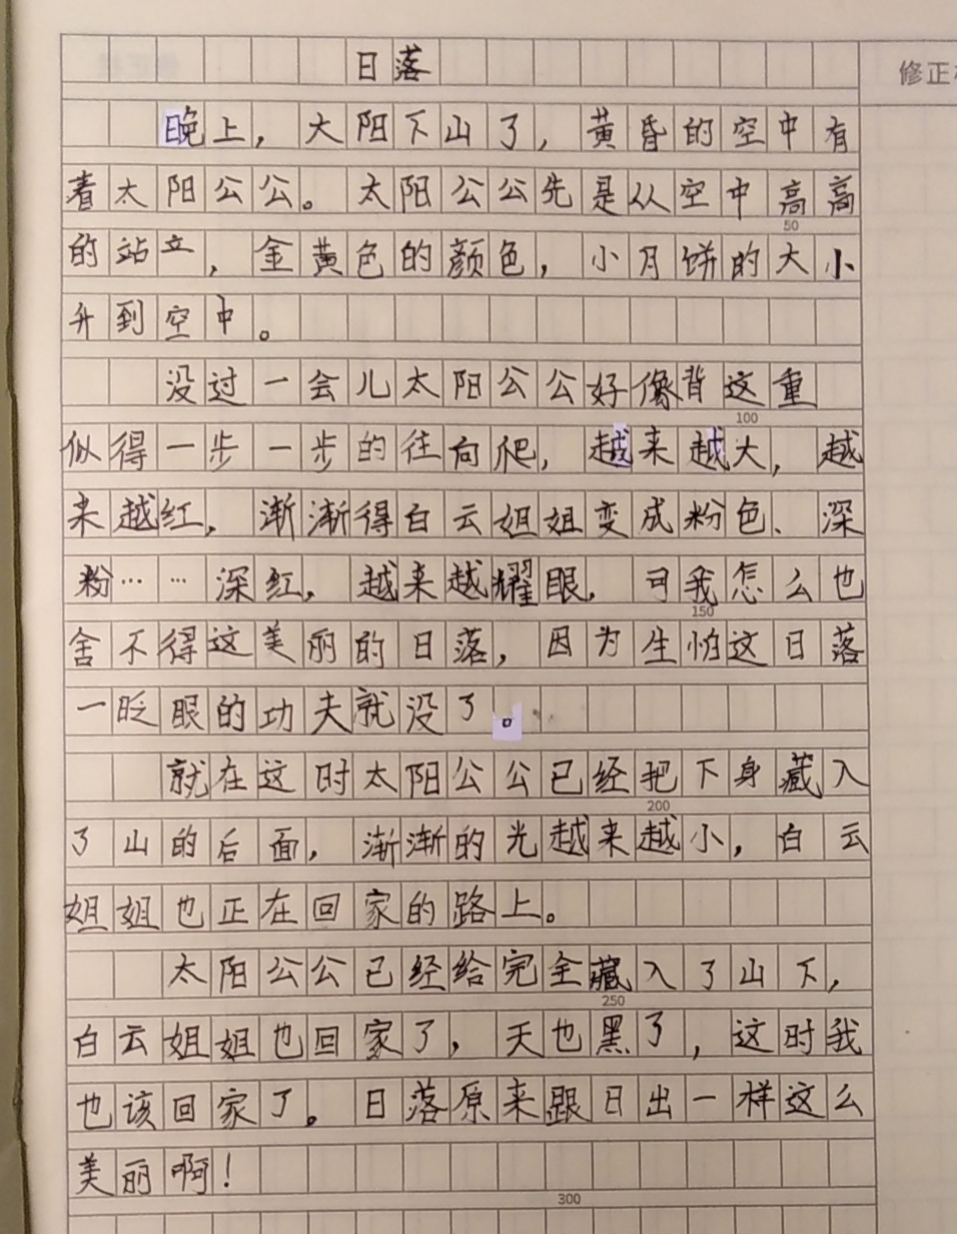 日落
修正
晚上，大阳下山了，黄昏的空中有
着太阳公公。太阳公公先是从空中高高
50
的站立，金黄色的颜色，小月饼的大小
升到空中。
没过一会儿太阳公公好像背这重
100
似得一步一步的往向爬，越来越大，越
来越红，渐渐得白云姐姐变成粉色、深
粉……深红，越来越耀眼，可我怎么也
150
舍不得这美丽的日落，因为生怕这日落
一眨眼的功夫就没了。
就在这时太阳公公已经把下身藏入
200
了山的后面，渐渐的光越来越小，白云
姐姐也正在回家的路上。
太阳公公已经给完全藏入了山下，
250
白云姐姐也回家了，天也黑了，这时我
也该回家了。日落原来跟日出一样这么
美丽啊！
300